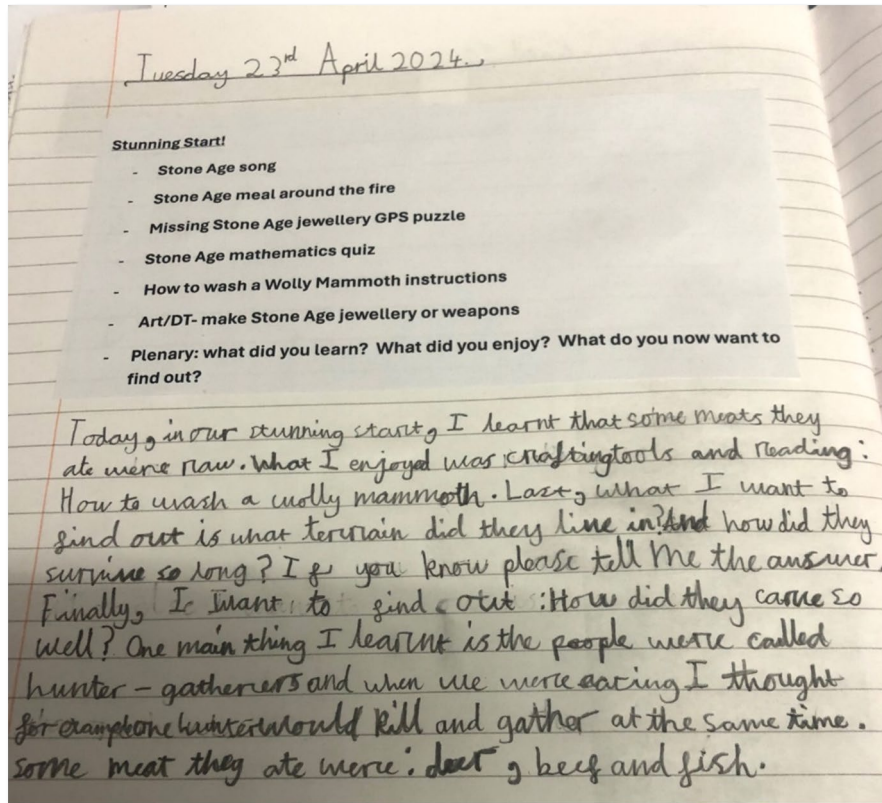 Tuesday 23rd April 2024.
Stunning Start!
- Stone Age song
- Stone Age meal around the fire
- Missing Stone Age jewellery GPS puzzle
- Stone Age mathematics quiz
- How to wash a Wolly Mammoth instructions
- Art/DT- make Stone Age jewellery or weapons
- Plenary: what did you learn? What did you enjoy? What do you now want to
find out?
Today, in our stunning start, I learnt that some meats they
ate were raw. What I enjoyed was craftingtools and reading:
How to wash a wolly mammoth. Last, what I want to
find out is what terrain did they live in? And how did they
survive so long? If you know please tell me the answer.
Finally, I want to find out: How did they carve so
well? One main thing I learnt is the people were called
hunter-gatherers and when we were eating I thought
for example one hunter would kill and gather at the same time.
some meat they ate were: deer, beef and fish.